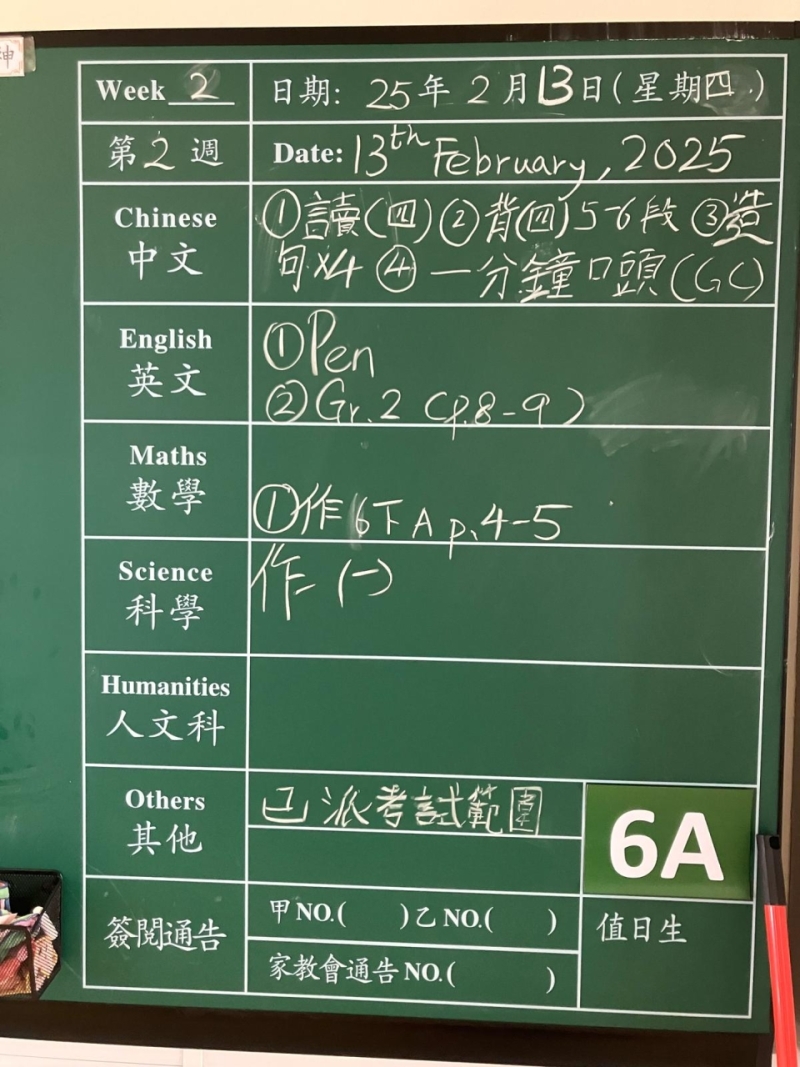 坤
Week 2 日期: 25年 2月 13日(星期四)
第 2 週 Date: 13th February, 2025
Chinese
中文
①讀(四) ②背(四) 5-6段 ③造
句x4 ④一分鐘口頭(GC)
English
英文
①Pen
②Gr.2 (p.8-9)
Maths
數學
①作6下A p.4-5
Science
科學
作(一)
Humanities
人文科
Others
其他
已派考試範圍
6A
簽閱通告
甲NO.( )乙NO.( )
家教會通告NO.( )
值日生